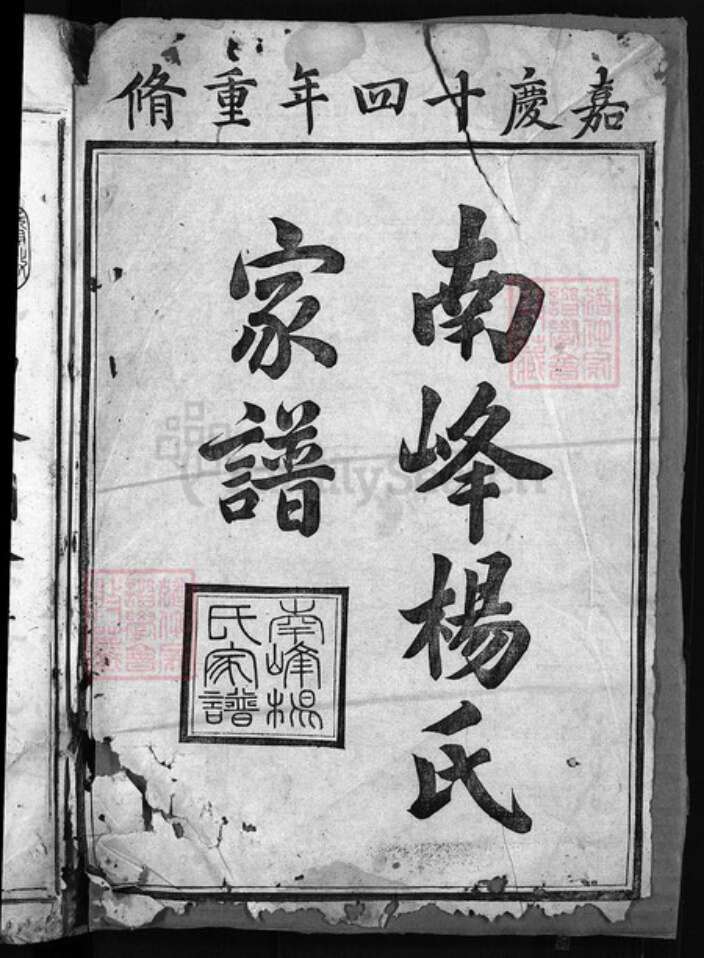 嘉慶十四年重脩
南峰楊氏
家譜
南峰楊
氏家譜